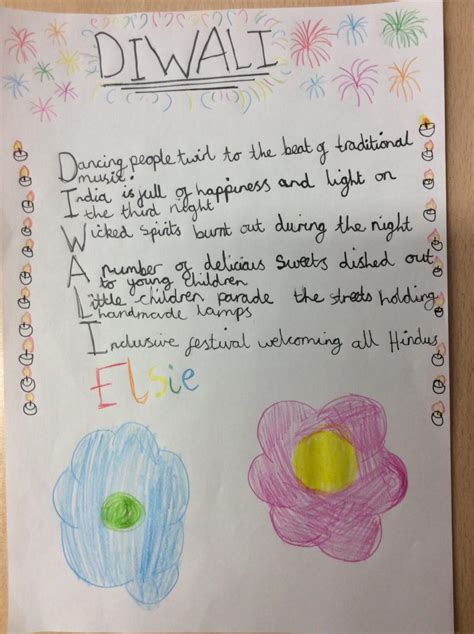 DIWALI
Dancing people twirl to the beat of traditional
music.
India is full of happiness and light on
the third night
Wicked spirits burnt out during the night
A number of delicious sweets dished out
to young children
Little children parade the streets holding
handmade lamps
Inclusive festival welcoming all Hindus
Elsie